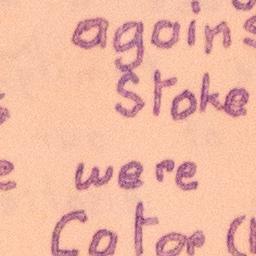 agains
Stoke
were
Cator (